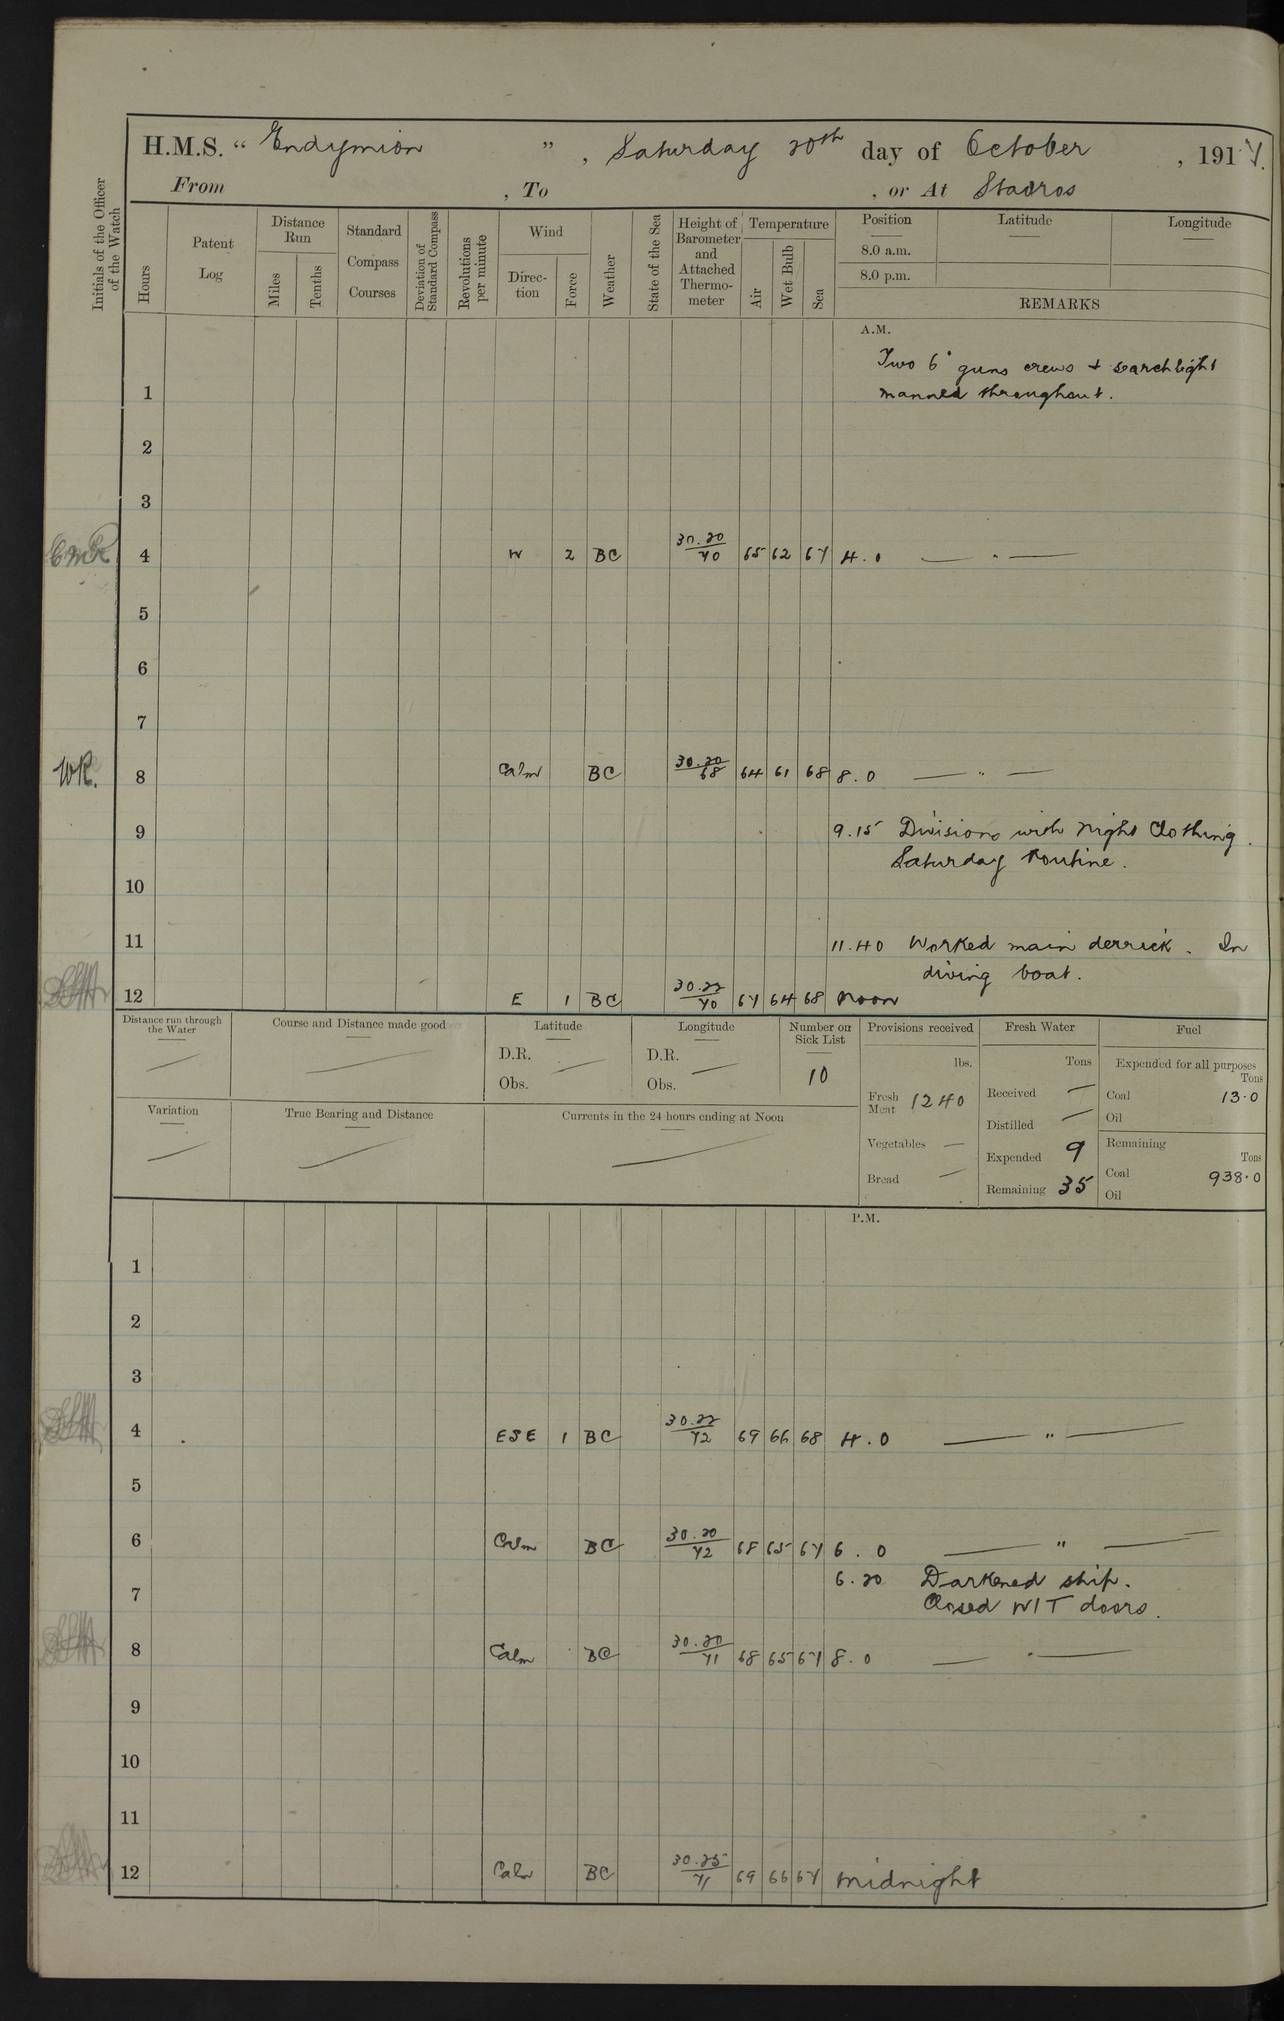 H.M.S. “ Endymion ” , Saturday 20th day of October , 1917.
From , To , or At Stavros
Initials of the Officer of the Watch
Hours
Patent Log
Distance Run
Miles
Tenths
Standard Compass Courses
Deviation of Standard Compass
Revolutions per minute
Wind
Direc-tion
Force
Weather
State of the Sea
Height of Barometer and Attached Thermo-meter
Temperature
Air
Wet Bulb
Sea
Position Latitude Longitude
8.0 a.m.
8.0 p.m.
REMARKS
A.M.
Two 6" guns crews + searchlight
1 manned throughout.
2
3
4 W 2 BC 30.20/70 65 62 67 4.0 — " —
5
6
7
WR. 8 Calm BC 30.20/68 64 61 68 8.0 — " —
9 9.15 Divisions with Night Clothing.
Saturday Routine.
10
11 11.40 Worked main derrick. In
diving boat.
12 E 1 BC 30.22/70 67 64 68 Noon
Distance run through the Water
Course and Distance made good
Latitude
D.R.
Obs.
Longitude
D.R.
Obs.
Number on Sick List
10
Provisions received
lbs.
Fresh Meat 1240
Vegetables —
Bread —
Fresh Water
Tons
Received —
Distilled —
Expended 9
Remaining 35
Fuel
Expended for all purposes
Tons
Coal 13.0
Oil
Remaining
Tons
Coal 938.0
Oil
Variation
True Bearing and Distance
Currents in the 24 hours ending at Noon
P.M.
1
2
3
4 ESE 1 BC 30.22/72 69 66 68 4.0 — " —
5
6 Calm BC 30.20/72 68 65 67 6.0 — " —
6.20 Darkened ship.
7 Closed W/T doors.
8 Calm BC 30.20/71 68 65 67 8.0 — " —
9
10
11
12 Calm BC 30.25/71 69 66 67 Midnight